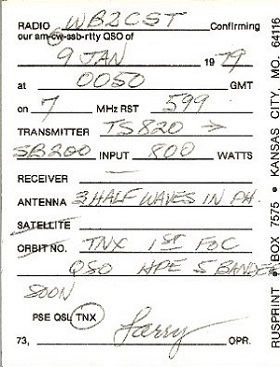 RADIO WB2CST Confirming
our am-cw-ssb-rtty QSO of
9 JAN 1979
at 0050 GMT
on 7 MHz RST 599
TRANSMITTER TS820 →
SB200 INPUT 800 WATTS
RECEIVER
ANTENNA 3 HALF WAVES IN PH.
SATELLITE
ORBIT NO. TNX 1ST FOC
QSO HPE 5 BANDER
SOON
PSE QSL TNX
73, Larry OPR.
RUSPRINT • BOX 7575 • KANSAS CITY, MO. 64116